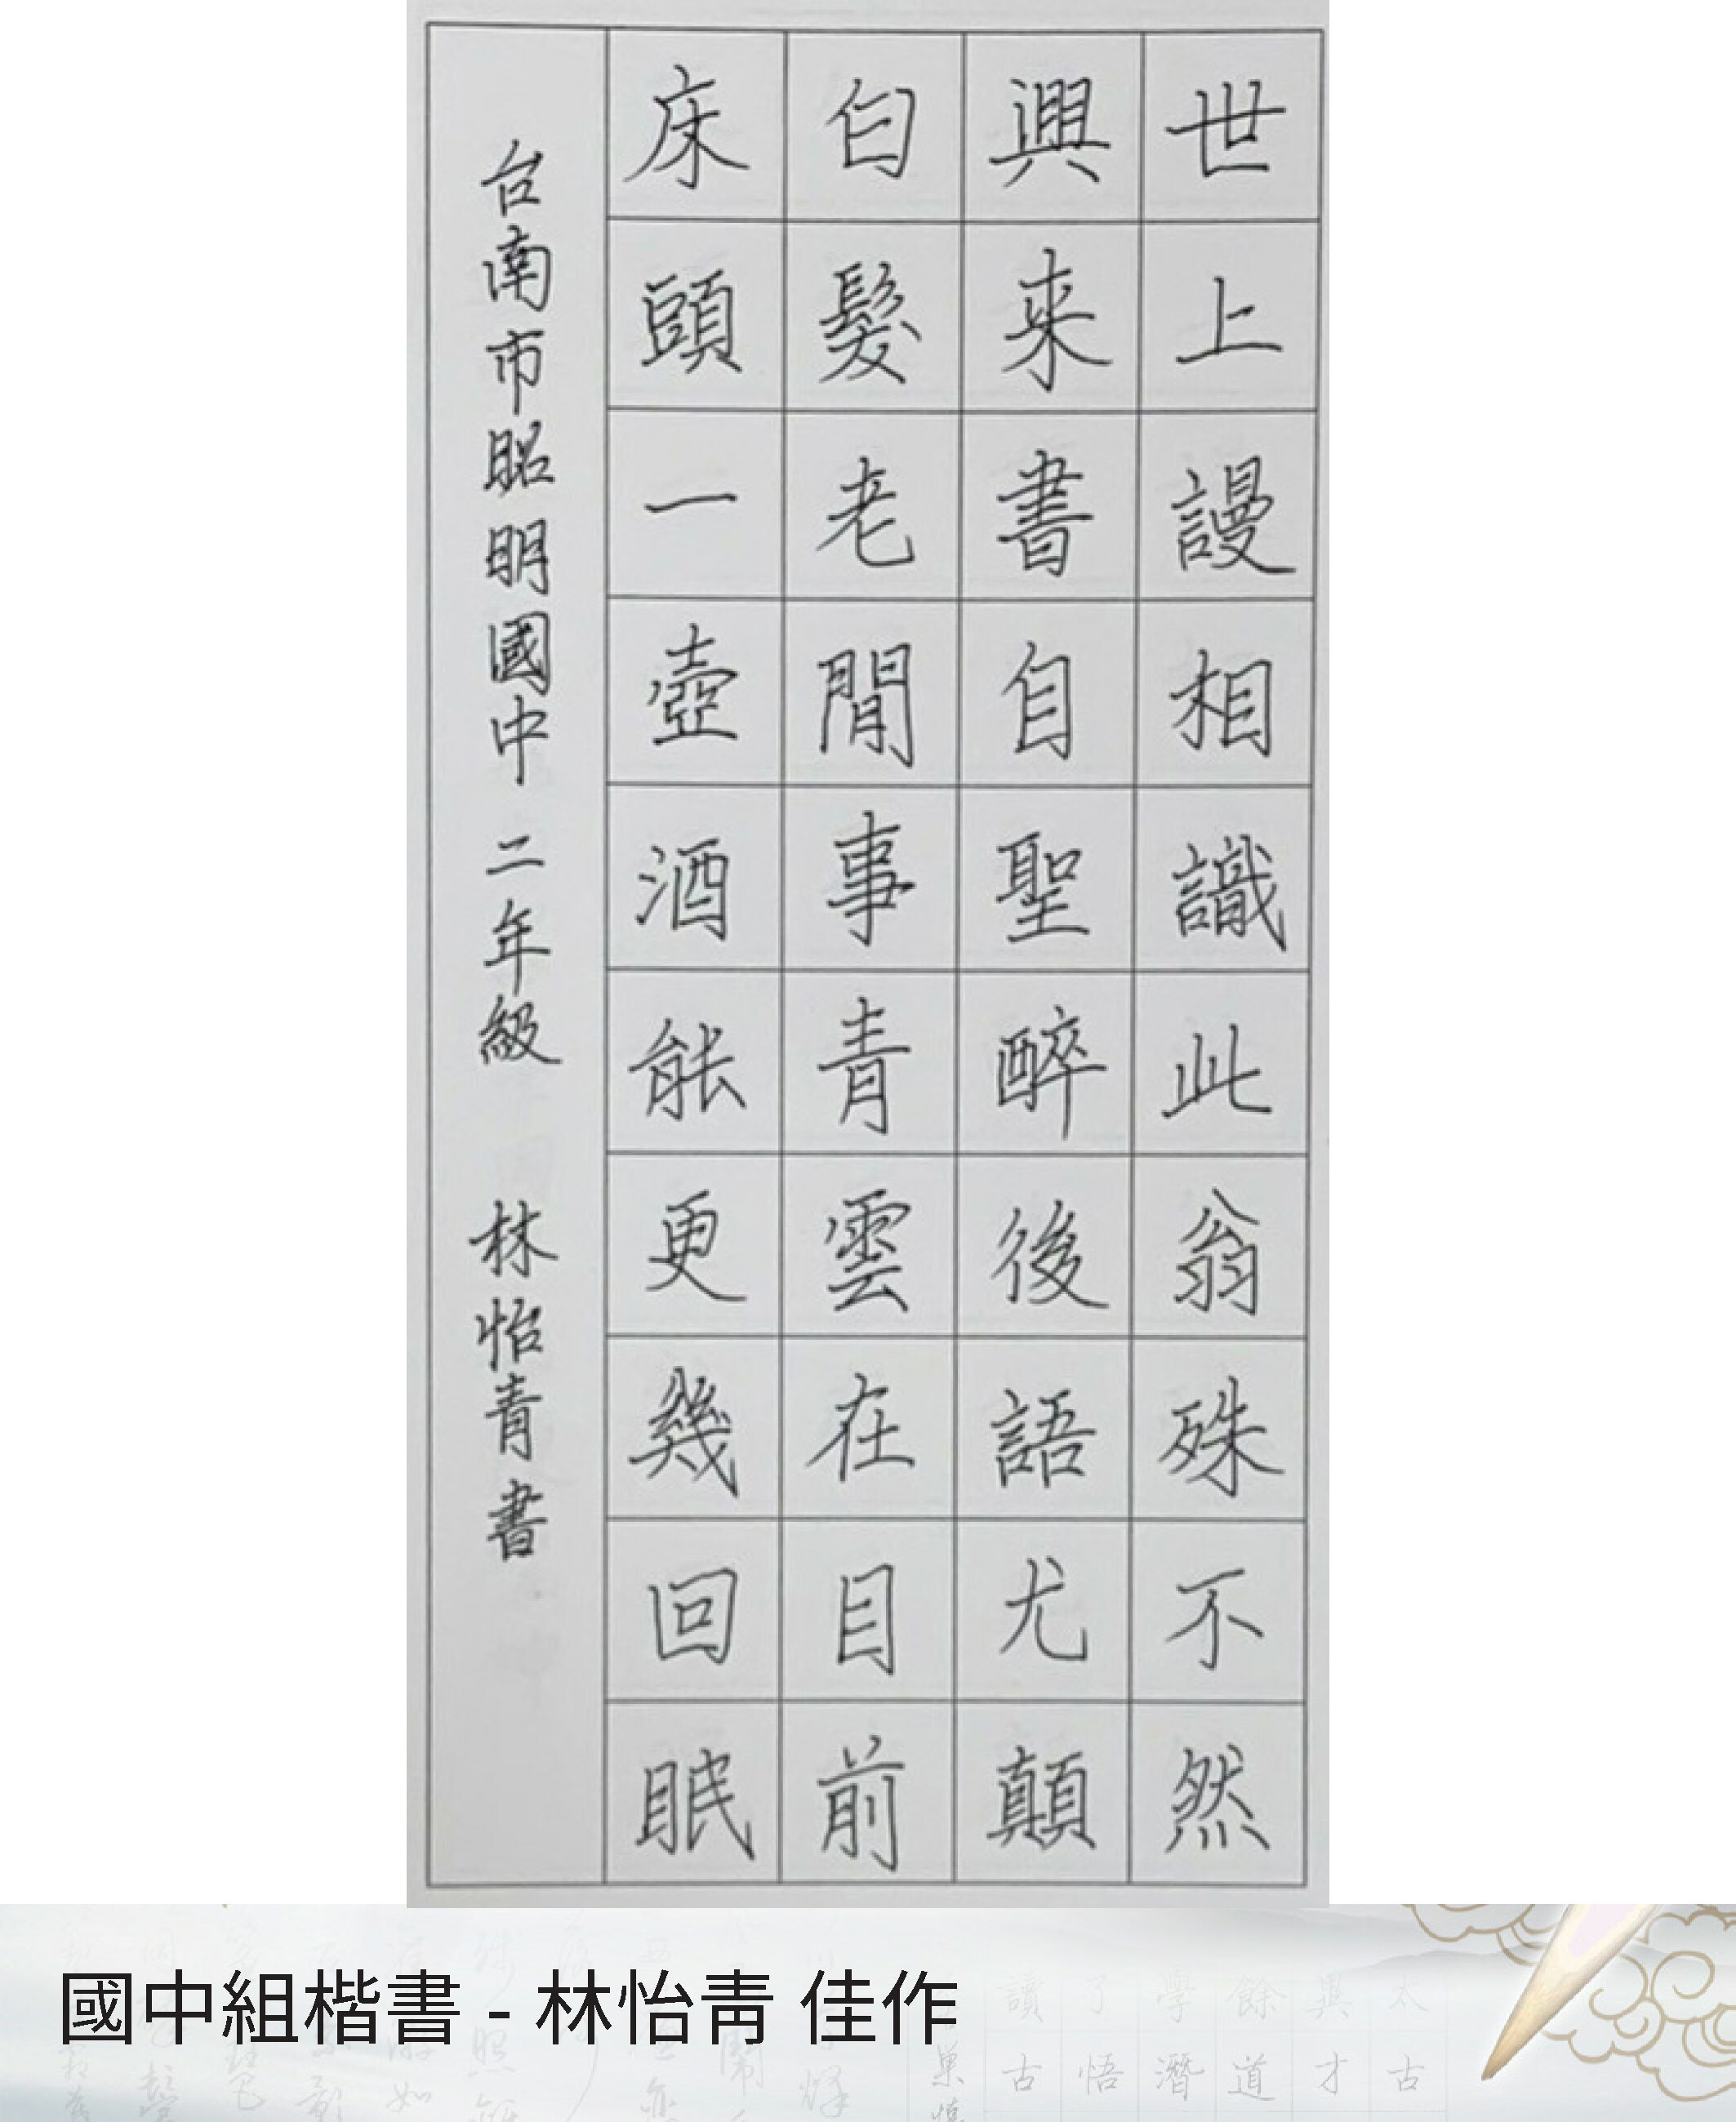 世上謾相識此翁殊不然
興來書自聖醉後語尤顛
白髮老閒事青雲在目前
床頭一壺酒能更幾回眠
台南市昭明國中二年級 林怡青書
國中組楷書 - 林怡青 佳作